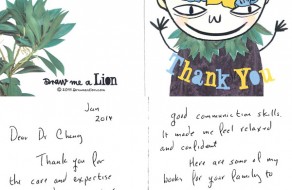 Draw me a Lion
Thank You
Jan
2014
Dear Dr Cheung
Thank you for
the care and expertise
good communication skills.
It made me feel relaxed
and confident
Here are some of my
books for your family to